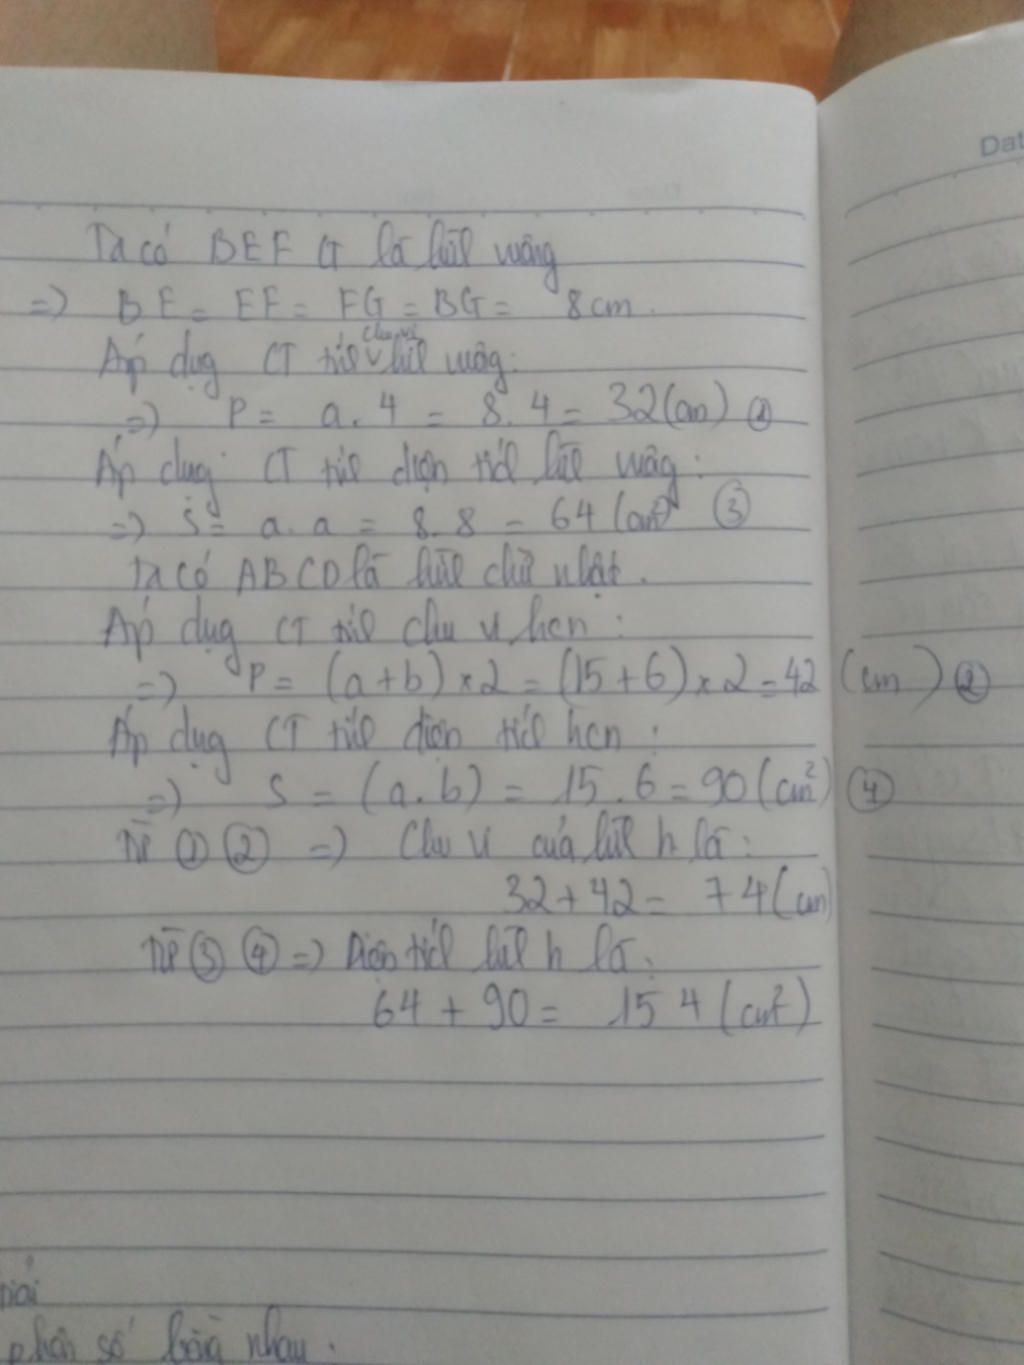 Dat
Ta có BEFG là hình vuông
=> BE = EF = FG = BG = 8cm.
Áp dụg CT tính chu vi hình vuôg:
=> P = a. 4 = 8. 4 = 32(cm) ①
Áp dụg CT tính diện tích hình vuôg:
=> S = a. a = 8. 8 = 64 (cm²) ③
Ta có ABCD là hình chữ nhật.
Áp dụg CT tính chu vi hcn:
=> P = (a+b) × 2 = (15+6) × 2 = 42 (cm) ②
Áp dụg CT tính diện tích hcn:
=> S = (a.b) = 15. 6 = 90 (cm²) ④
Từ ① ② => Chu vi của hình h là:
32 + 42 = 74 (cm)
Từ ③ ④ => Diện tích hình h là:
64 + 90 = 154 (cm²)
phân số bằng nhau.